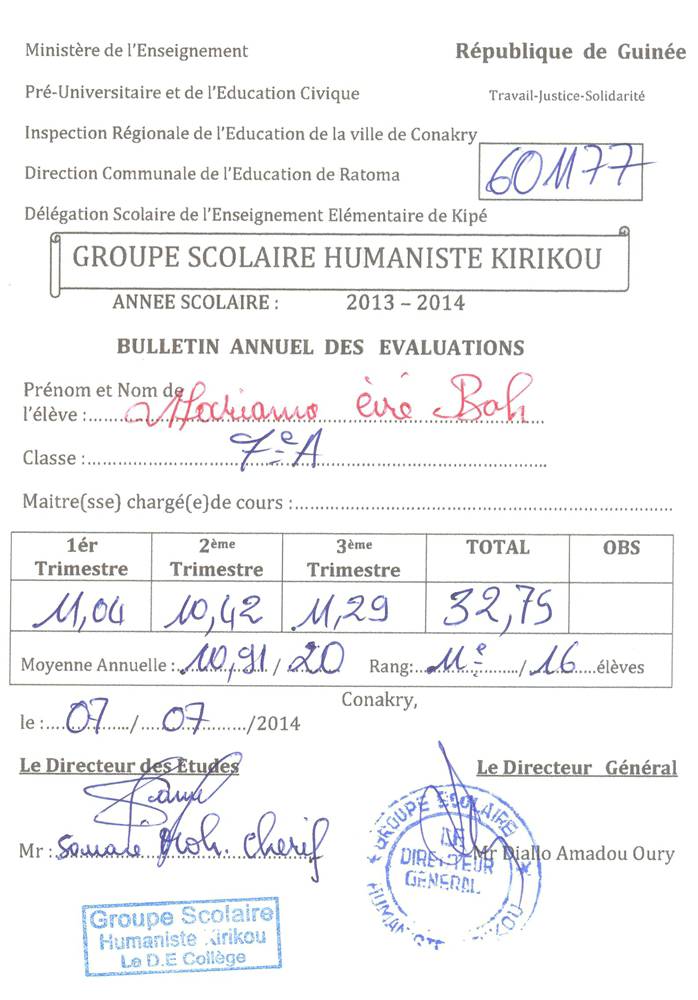 Ministère de l'Enseignement
République de Guinée
Pré-Universitaire et de l'Education Civique
Travail-Justice-Solidarité
Inspection Régionale de l'Education de la ville de Conakry
Direction Communale de l'Education de Ratoma
601177
Délégation Scolaire de l'Enseignement Elémentaire de Kipé
GROUPE SCOLAIRE HUMANISTE KIRIKOU
ANNEE SCOLAIRE : 2013 – 2014
BULLETIN ANNUEL DES EVALUATIONS
Prénom et Nom de
l'élève : Mariama Bah
Classe : 7e A
Maitre(sse) chargé(e)de cours :
1ér Trimestre 2ème Trimestre 3ème Trimestre TOTAL OBS
11,04 10,42 11,29 32,75
Moyenne Annuelle : 10,91 / 20 Rang: 11e / 16 élèves
Conakry,
le : 07 / 07 /2014
Le Directeur des Etudes
Le Directeur Général
Mr : Moh. Cherif
Mr Diallo Amadou Oury
GROUPE SCOLAIRE
LE
DIRECTEUR
GENERAL
Groupe Scolaire
Humaniste Kirikou
Le D.E Collège